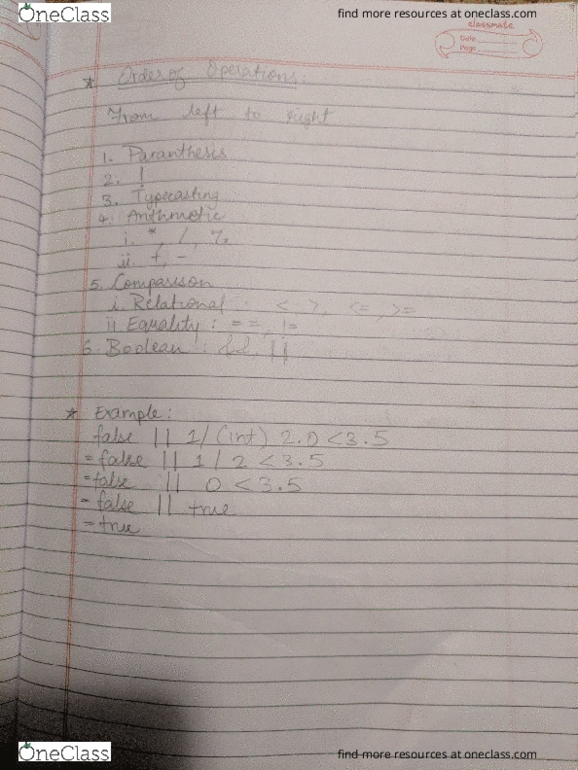 OneClass
find more resources at oneclass.com
classmate
Date
Page
* Order of Operations:
From left to right
1. Paranthesis
2. !
3. Typecasting
4. Arithmetic
i. *, /, %
ii. +, -
5. Comparison
i. Relational : <, >, <=, >=
ii Equality : ==, !=
6. Boolean : &&, ||
* Example:
false || 1/(int) 2.0 <3.5
= false || 1 / 2 <3.5
= false || 0 <3.5
= false || true
= true
OneClass
find more resources at oneclass.com